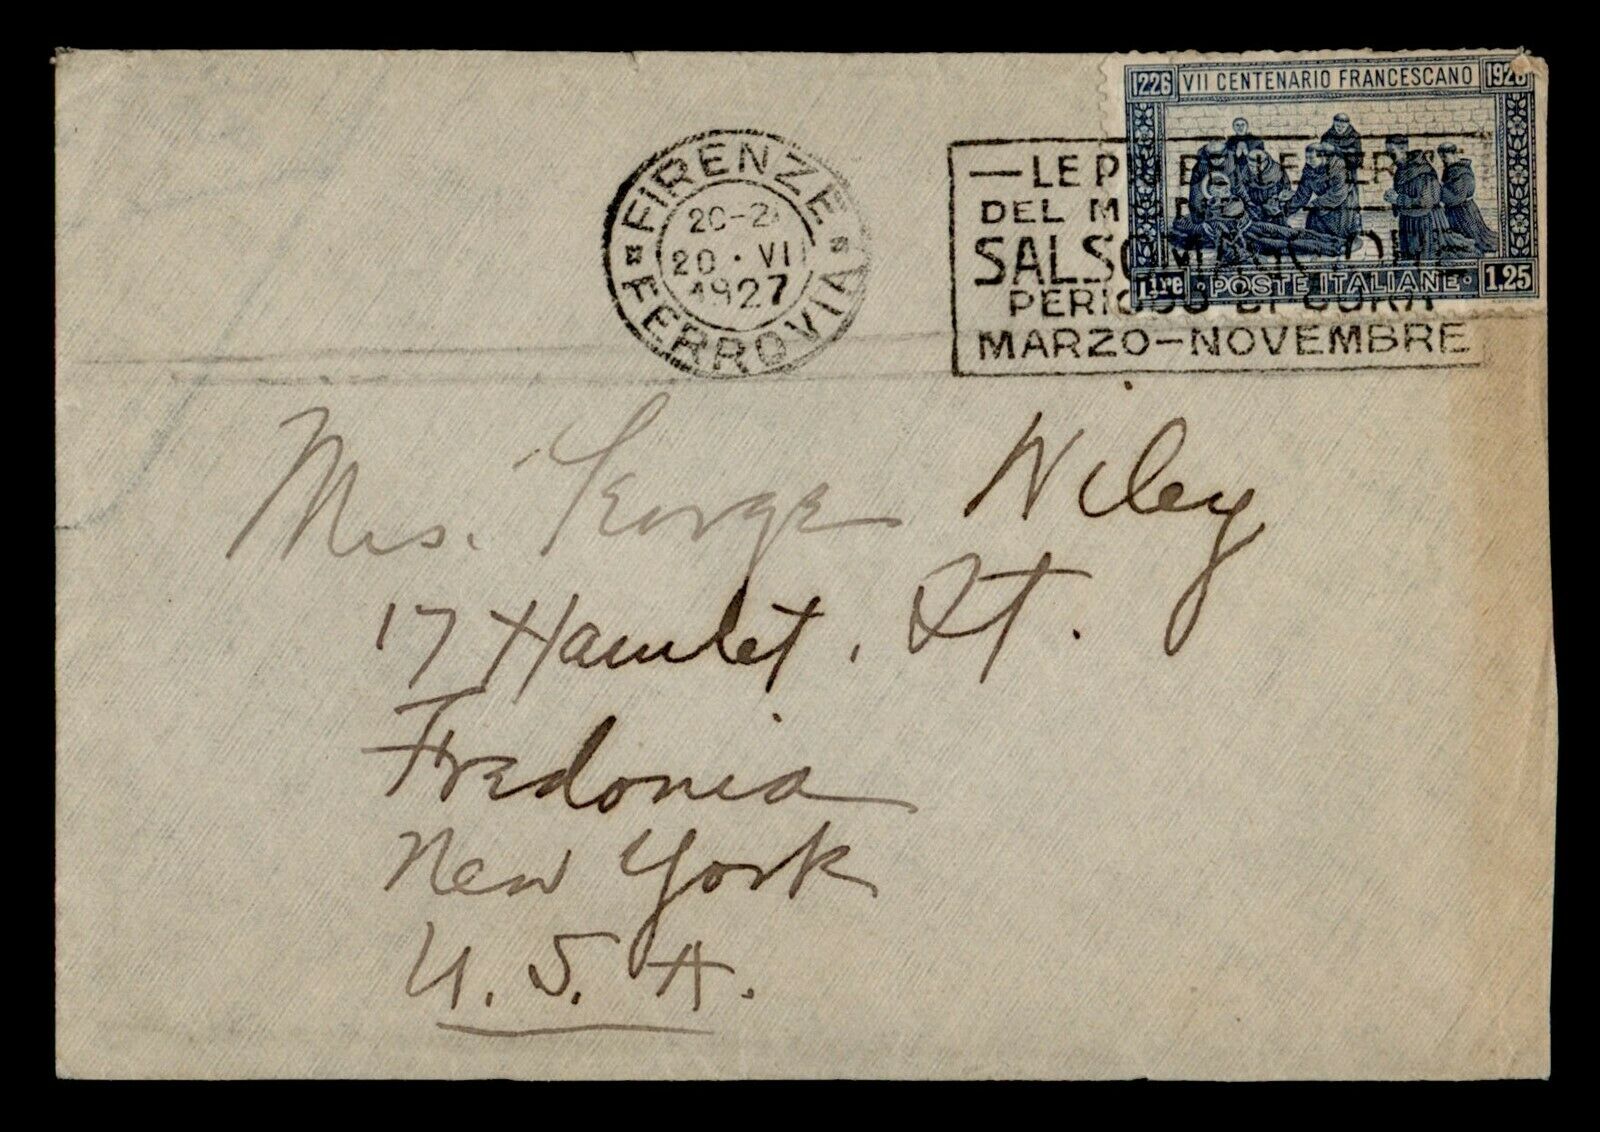 1226 VII CENTENARIO FRANCESCANO 1926
Lire · POSTE ITALIANE · 1.25
FIRENZE
20-2
20 · VI
1927
FERROVIA
— LE PIÙ BELLE TERME
DEL MONDO —
SALSOMAGGIORE
PERIODO DI CURA
MARZO-NOVEMBRE
Mrs. George Wiley
17 Hamlet. St.
Fredonia
New York
U.S.A.